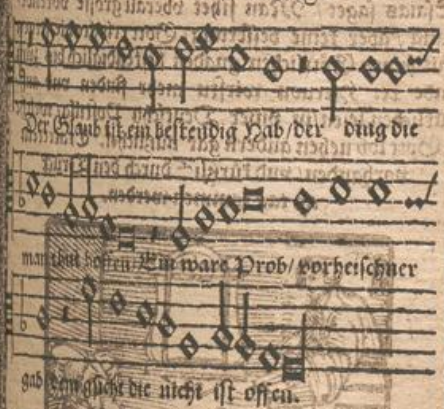 Der Glaub ist ein bestendig Hab/der ding die
man thut hoffen/Ein ware Prob/vorheischner
gab dem gsicht die nicht ist offen.